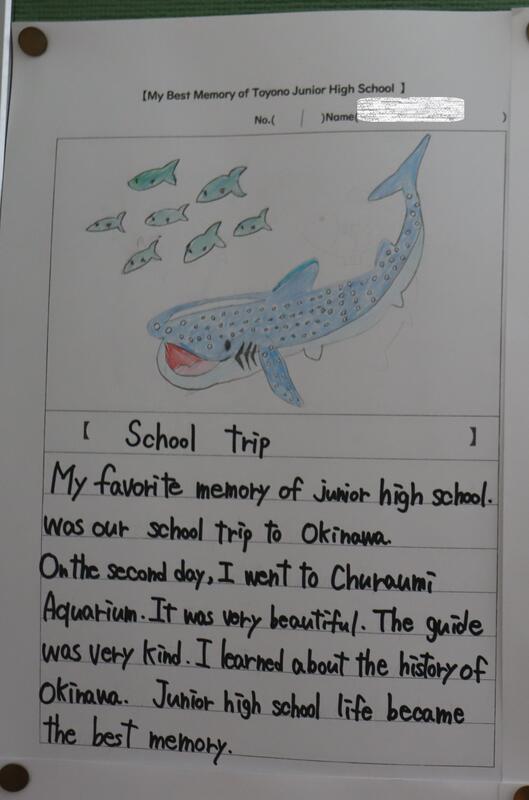 【My Best Memory of Toyono Junior High School 】
No.( )Name( )
【 School trip 】
My favorite memory of junior high school.
was our school trip to Okinawa.
On the second day, I went to Churaumi
Aquarium. It was very beautiful. The guide
was very kind. I learned about the history of
Okinawa. Junior high school life became
the best memory.